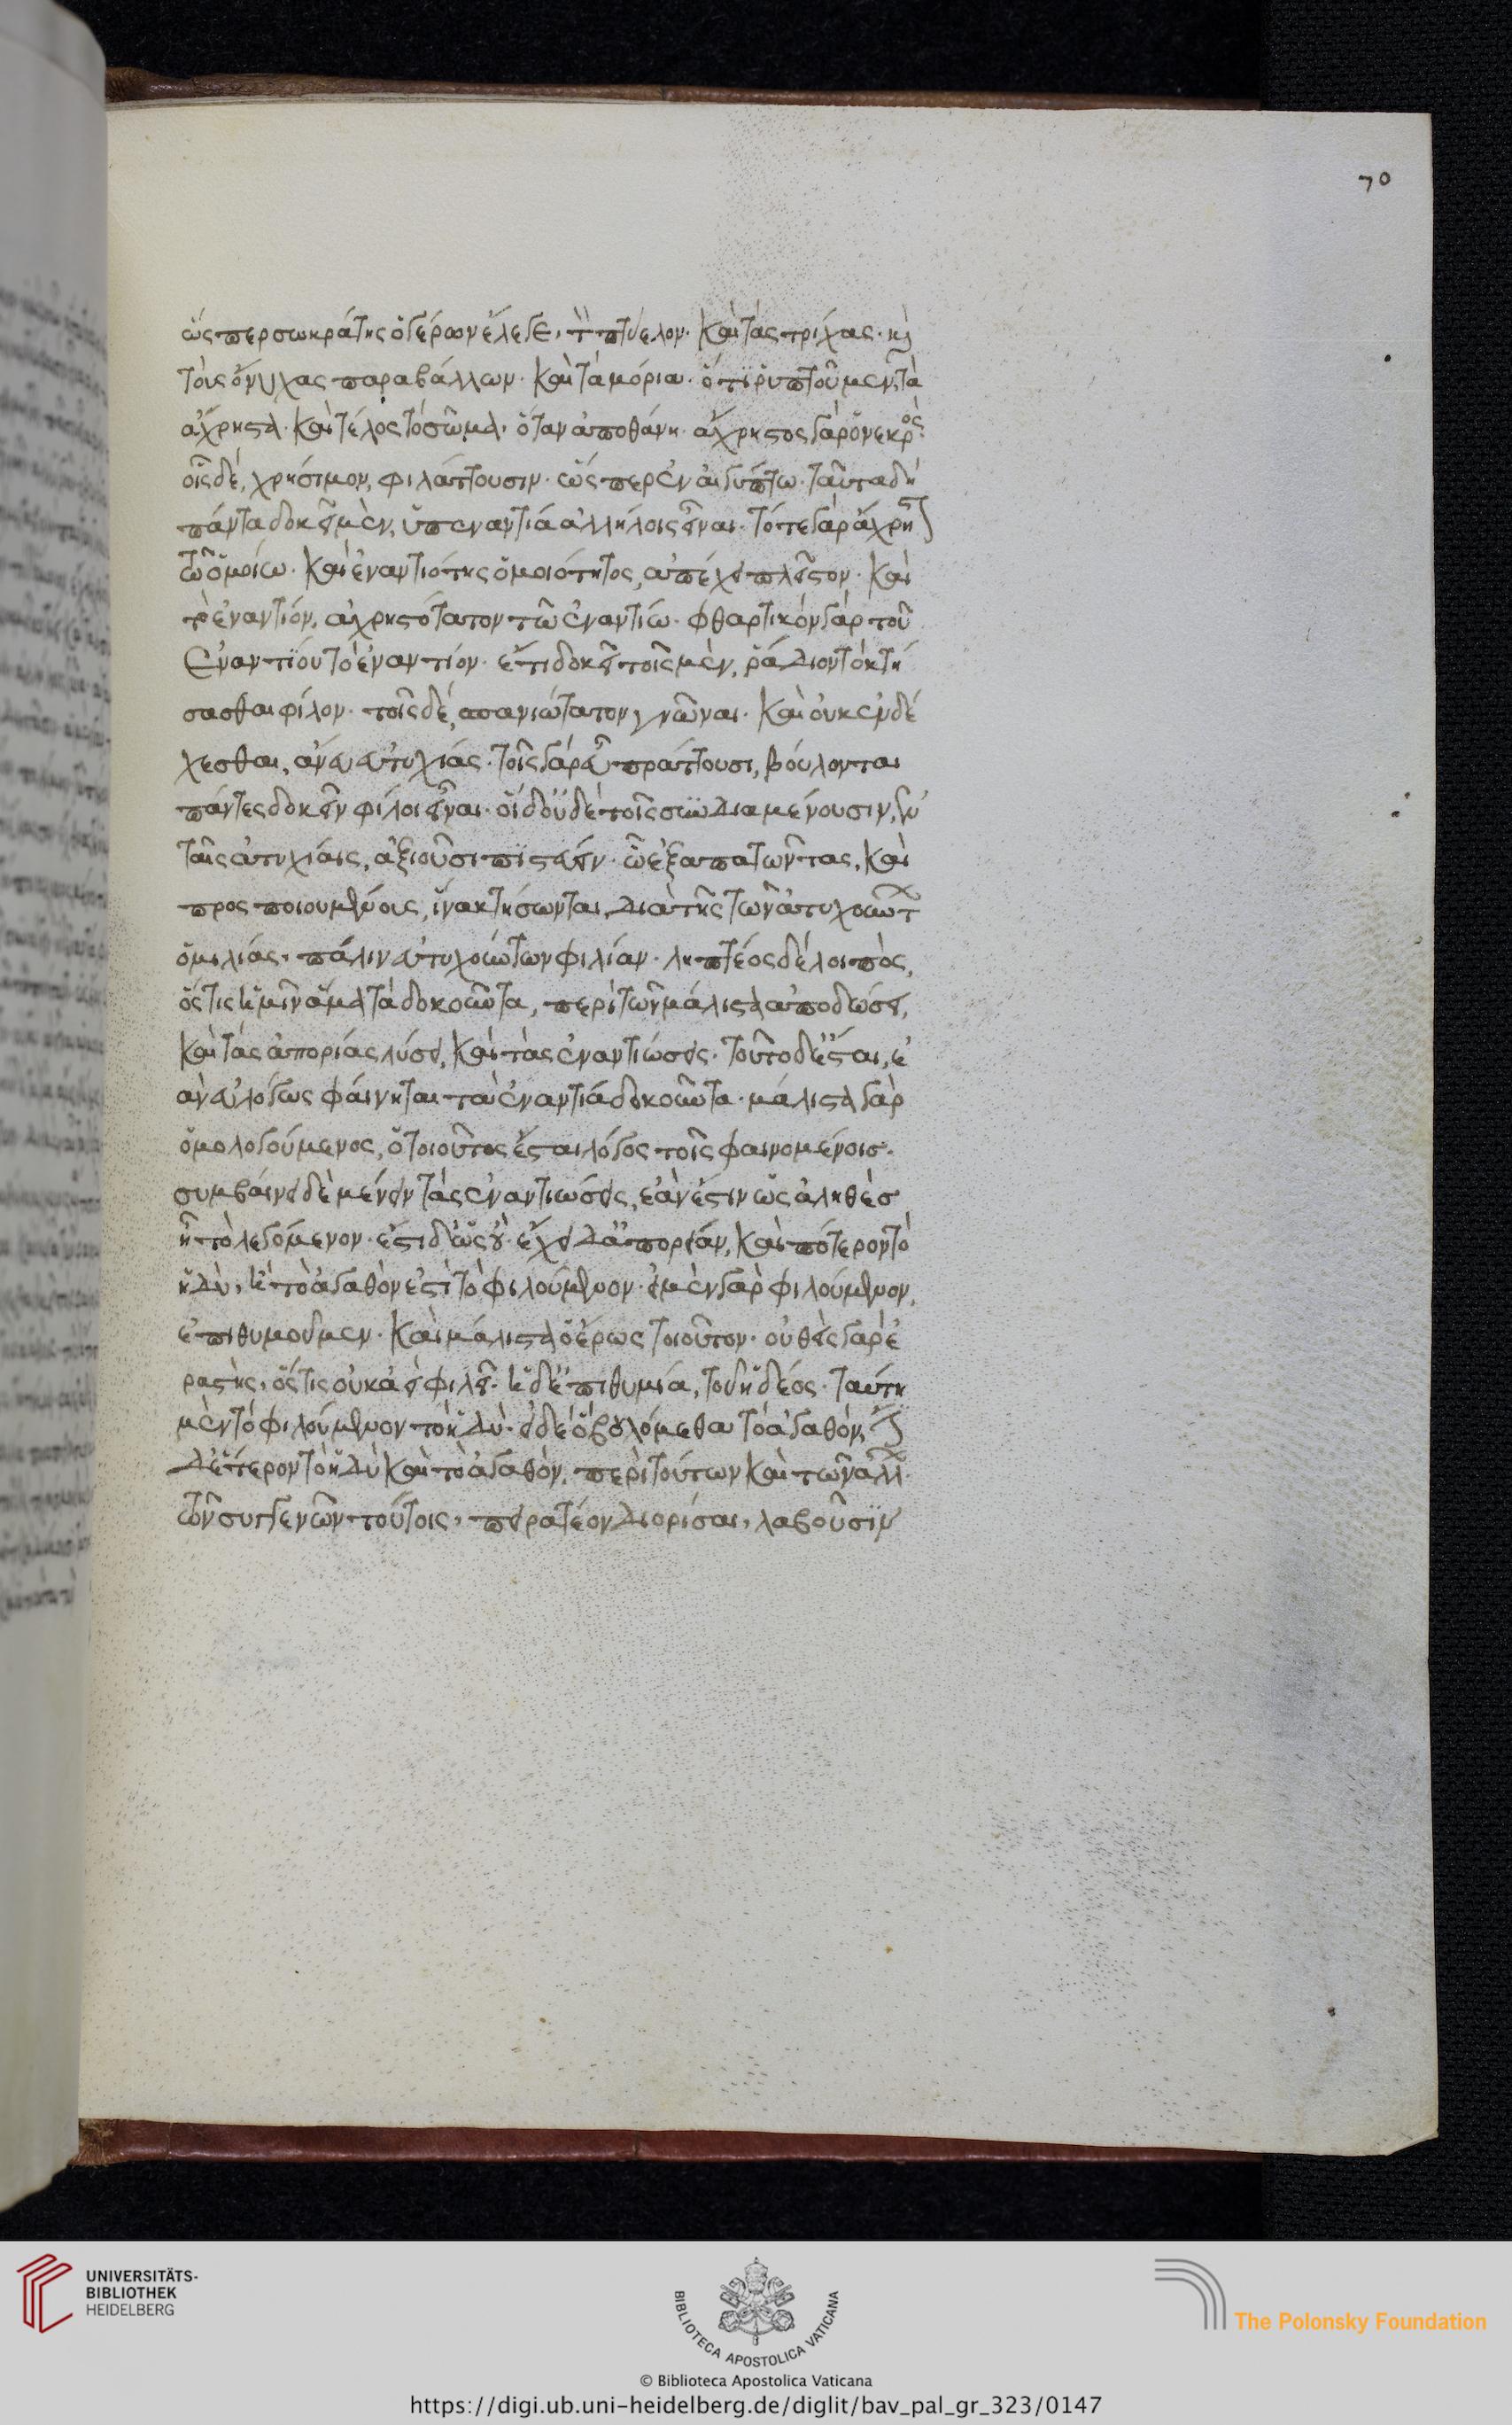 70
ὥς περ σωκράτης ὁ γέρων ἔλεγε, τὸ πτύελον· καὶ τὰς τρίχας· καὶ
τοὺς ὄνυχας παραβάλλων· καὶ τὰ μόρια· ὅτι ῥιπτοῦμεν, τὰ
ἄχρηστα· καὶ τέλος τὸ σῶμα, ὅταν ἀποθάνη· ἄχρηστος γὰρ ὁ νεκρός·
οἷς δὲ, χρήσιμον, φυλάττουσιν· ὥς περ ἐν αἰγύπτω· ταῦτα δὴ
πάντα δοκεῖ μὲν, ὑπεναντία ἀλλήλοις εἶναι· τό τε γὰρ ἄχρηστον
τῶ ὁμοίω· καὶ ἐναντιότης ὁμοιότητος, ἀπέχει πλεῖστον· καὶ
τὸ ἐναντίον, ἀχρηστότατον τῶ ἐναντίω· φθαρτικὸν γὰρ τοῦ
ἐναντίου τὸ ἐναντίον· ἔτι δοκεῖ τοῖς μὲν, ῥάδιον τὸ κτή
σασθαι φίλον· τοῖς δὲ, σπανιώτατον γνῶναι· καὶ οὐκ ἐνδέ
χεσθαι, ἄνευ ἀτυχίας· τοῖς γὰρ εὖ πράττουσι, βούλονται
πάντες δοκεῖν φίλοι εἶναι· οἱ δ' οὐδὲ τοῖς συνδιαμένουσιν, ἐν
ταῖς ἀτυχίαις, ἀξιοῦσι πιστεύειν· ὡς ἐξαπατῶντας, καὶ
προσποιουμένους, ἵνα κτήσωνται, διὰ τῆς τῶν ἀτυχούντων
ὁμιλίας, πάλιν εὐτυχούντων φιλίαν· ληπτέος δὲ λοιπὸς,
ὅστις ἡμῖν ἅμα τὰ δοκοῦντα, περὶ τῶν μάλιστα ἀποδώσει,
καὶ τὰς ἀπορίας λύσει, καὶ τὰς ἐναντιώσεις· τοῦτο δ' ἔσται, ἐ
ὰν εὐλόγως φαίνηται τὰ ἐναντία δοκοῦντα· μάλιστα γὰρ
ὁμολογούμενος, ὁ τοιοῦτος ἔσται λόγος τοῖς φαινομένοις·
συμβαίνει δὲ μένειν τὰς ἐναντιώσεις, ἐὰν ἔστιν ὡς ἀληθὲς
ἦ τὸ λεγόμενον· ἔστι δ' ὡς οὔ· ἔχει δ' ἀπορίαν, καὶ πότερον τὸ
ἡδὺ, ἢ τὸ ἀγαθόν ἐστι τὸ φιλούμενον· εἰ μὲν γὰρ φιλούμενον,
ἐπιθυμοῦμεν· καὶ μάλιστα ὁ ἔρως τοιοῦτον· οὐθεὶς γὰρ ἐ
ραστὴς, ὅστις οὐκ ἀεὶ φιλεῖ· ἡ δ' ἐπιθυμία, τοῦ ἡδέος· ταύτη
μὲν τὸ φιλούμενον τὸ ἡδύ· εἰ δὲ ὃ βουλόμεθα τὸ ἀγαθόν, ἔστι
δ' ἕτερον τὸ ἡδὺ καὶ τὸ ἀγαθόν, περὶ τούτων καὶ τῶν ἄλλ
ων συγγενῶν τούτοις, πειρατέον διορίσαι, λαβοῦσιν
UNIVERSITÄTS-
BIBLIOTHEK
HEIDELBERG
BIBLIOTECA APOSTOLICA VATICANA
The Polonsky Foundation
© Biblioteca Apostolica Vaticana
https://digi.ub.uni-heidelberg.de/diglit/bav_pal_gr_323/0147